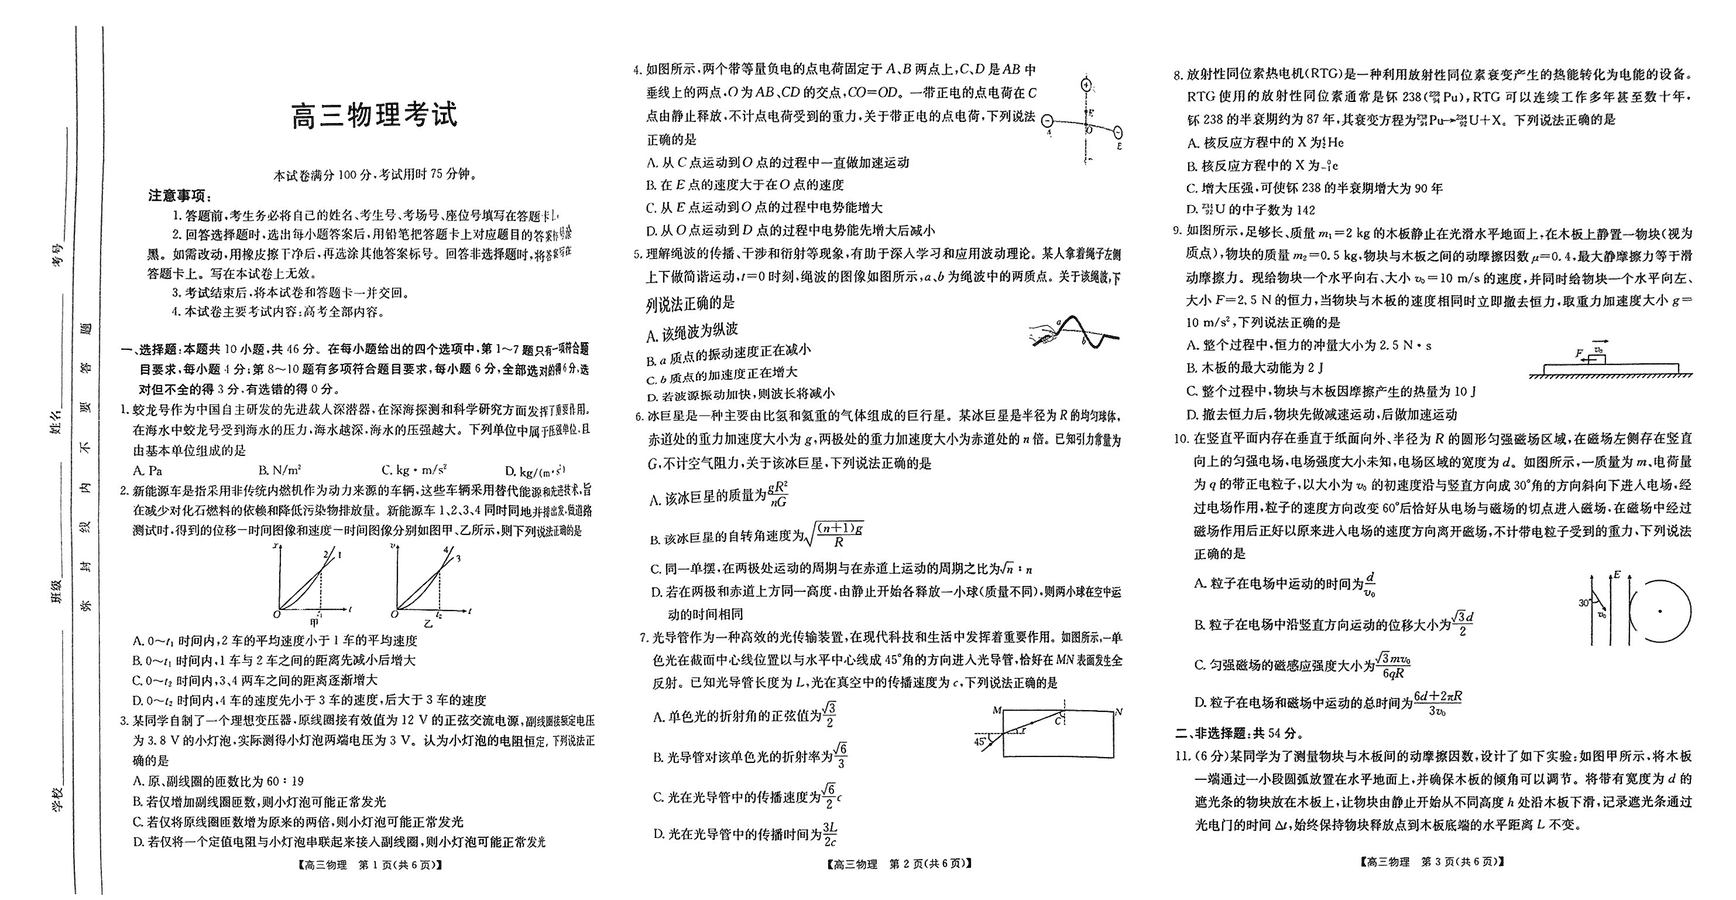 高三物理考试
本试卷满分100分,考试用时75分钟。
注意事项:
1. 答题前,考生务必将自己的姓名、考生号、考场号、座位号填写在答题卡上。
2. 回答选择题时,选出每小题答案后,用铅笔把答题卡上对应题目的答案标号涂
黑。如需改动,用橡皮擦干净后,再选涂其他答案标号。回答非选择题时,将答案写在
答题卡上。写在本试卷上无效。
3. 考试结束后,将本试卷和答题卡一并交回。
4. 本试卷主要考试内容:高考全部内容。
一、选择题:本题共10小题,共46分。在每小题给出的四个选项中,第1~7题只有一项符合题
目要求,每小题4分;第8~10题有多项符合题目要求,每小题6分,全部选对的得6分,选
对但不全的得3分,有选错的得0分。
1. 蛟龙号作为中国自主研发的先进载人深潜器,在深海探测和科学研究方面发挥了重要作用。
在海水中蛟龙号受到海水的压力,海水越深,海水的压强越大。下列单位中属于压强单位,且
由基本单位组成的是
A. Pa B. N/m² C. kg·m/s² D. kg/(m·s²)
2. 新能源车是指采用非传统内燃机作为动力来源的车辆,这些车辆采用替代能源和先进技术,旨
在减少对化石燃料的依赖和降低污染物排放量。新能源车1、2、3、4同时同地并排出发,做道路
测试时,得到的位移—时间图像和速度—时间图像分别如图甲、乙所示,则下列说法正确的是
x 2 1 O t₁ t 甲
v 4 3 O t₂ t 乙
A. 0~t₁ 时间内,2车的平均速度小于1车的平均速度
B. 0~t₁ 时间内,1车与2车之间的距离先减小后增大
C. 0~t₂ 时间内,3、4两车之间的距离逐渐增大
D. 0~t₂ 时间内,4车的速度先小于3车的速度,后大于3车的速度
3. 某同学自制了一个理想变压器,原线圈接有效值为12 V的正弦交流电源,副线圈接额定电压
为3.8 V的小灯泡,实际测得小灯泡两端电压为3 V。认为小灯泡的电阻恒定,下列说法正
确的是
A. 原、副线圈的匝数比为60:19
B. 若仅增加副线圈匝数,则小灯泡可能正常发光
C. 若仅将原线圈匝数增为原来的两倍,则小灯泡可能正常发光
D. 若仅将一个定值电阻与小灯泡串联起来接入副线圈,则小灯泡可能正常发光
【高三物理 第1页(共6页)】
学校 班级 姓名 考号
弥 封 线 内 不 要 答 题
4. 如图所示,两个带等量负电的点电荷固定于A、B两点上,C、D是AB中
垂线上的两点,O为AB、CD的交点,CO=OD。一带正电的点电荷在C
点由静止释放,不计点电荷受到的重力,关于带正电的点电荷,下列说法
正确的是
A. 从C点运动到O点的过程中一直做加速运动
B. 在E点的速度大于在O点的速度
C. 从E点运动到O点的过程中电势能增大
D. 从O点运动到D点的过程中电势能先增大后减小
A E O
5. 理解绳波的传播、干涉和衍射等现象,有助于深入学习和应用波动理论。某人拿着绳子左侧
上下做简谐运动,t=0时刻,绳波的图像如图所示,a、b为绳波中的两质点。关于该绳波,下
列说法正确的是
A. 该绳波为纵波
B. a质点的振动速度正在减小
C. b质点的加速度正在增大
D. 若波源振动加快,则波长将减小
a b
6. 冰巨星是一种主要由比氢和氦重的气体组成的巨行星。某冰巨星是半径为R的均匀球体,
赤道处的重力加速度大小为g,两极处的重力加速度大小为赤道处的n倍。已知引力常量为
G,不计空气阻力,关于该冰巨星,下列说法正确的是
A. 该冰巨星的质量为gR²/nG
B. 该冰巨星的自转角速度为√((n+1)g/R)
C. 同一单摆,在两极处运动的周期与在赤道上运动的周期之比为√n:n
D. 若在两极和赤道上方同一高度,由静止开始各释放一小球(质量不同),则两小球在空中运
动的时间相同
7. 光导管作为一种高效的光传输装置,在现代科技和生活中发挥着重要作用。如图所示,一单
色光在截面中心线位置以与水平中心线成45°角的方向进入光导管,恰好在MN表面发生全
反射。已知光导管长度为L,光在真空中的传播速度为c,下列说法正确的是
A. 单色光的折射角的正弦值为√3/2
B. 光导管对该单色光的折射率为√6/3
C. 光在光导管中的传播速度为√6/2c
D. 光在光导管中的传播时间为3L/2c
M N C r 45°
【高三物理 第2页(共6页)】
8. 放射性同位素热电机(RTG)是一种利用放射性同位素衰变产生的热能转化为电能的设备。
RTG使用的放射性同位素通常是钚238(²³⁸₉₄Pu),RTG可以连续工作多年甚至数十年,
钚238的半衰期约为87年,其衰变方程为²³⁸₉₄Pu→²³⁴₉₂U+X。下列说法正确的是
A. 核反应方程中的X为⁴₂He
B. 核反应方程中的X为⁰₋₁e
C. 增大压强,可使钚238的半衰期增大为90年
D. ²³⁴₉₂U的中子数为142
9. 如图所示,足够长、质量m₁=2 kg的木板静止在光滑水平地面上,在木板上静置一物块(视为
质点),物块的质量m₂=0.5 kg,物块与木板之间的动摩擦因数μ=0.4,最大静摩擦力等于滑
动摩擦力。现给物块一个水平向右、大小v₀=10 m/s的速度,并同时给物块一个水平向左、
大小F=2.5 N的恒力,当物块与木板的速度相同时立即撤去恒力,取重力加速度大小g=
10 m/s²,下列说法正确的是
A. 整个过程中,恒力的冲量大小为2.5 N·s
B. 木板的最大动能为2 J
C. 整个过程中,物块与木板因摩擦产生的热量为10 J
D. 撤去恒力后,物块先做减速运动,后做加速运动
F v₀
10. 在竖直平面内存在垂直于纸面向外、半径为R的圆形匀强磁场区域,在磁场左侧存在竖直
向上的匀强电场,电场强度大小未知,电场区域的宽度为d。如图所示,一质量为m、电荷量
为q的带正电粒子,以大小为v₀的初速度沿与竖直方向成30°角的方向斜向下进入电场,经
过电场作用,粒子的速度方向改变60°后恰好从电场与磁场的切点进入磁场,在磁场中经过
磁场作用后正好以原来进入电场的速度方向离开磁场,不计带电粒子受到的重力,下列说法
正确的是
A. 粒子在电场中运动的时间为d/v₀
B. 粒子在电场中沿竖直方向运动的位移大小为√3d/2
C. 匀强磁场的磁感应强度大小为√3mv₀/6qR
D. 粒子在电场和磁场中运动的总时间为(6d+2πR)/3v₀
30° v₀ E
二、非选择题:共54分。
11. (6分)某同学为了测量物块与木板间的动摩擦因数,设计了如下实验:如图甲所示,将木板
一端通过一小段圆弧放置在水平地面上,并确保木板的倾角可以调节。将带有宽度为d的
遮光条的物块放在木板上,让物块由静止开始从不同高度h处沿木板下滑,记录遮光条通过
光电门的时间Δt,始终保持物块释放点到木板底端的水平距离L不变。
【高三物理 第3页(共6页)】